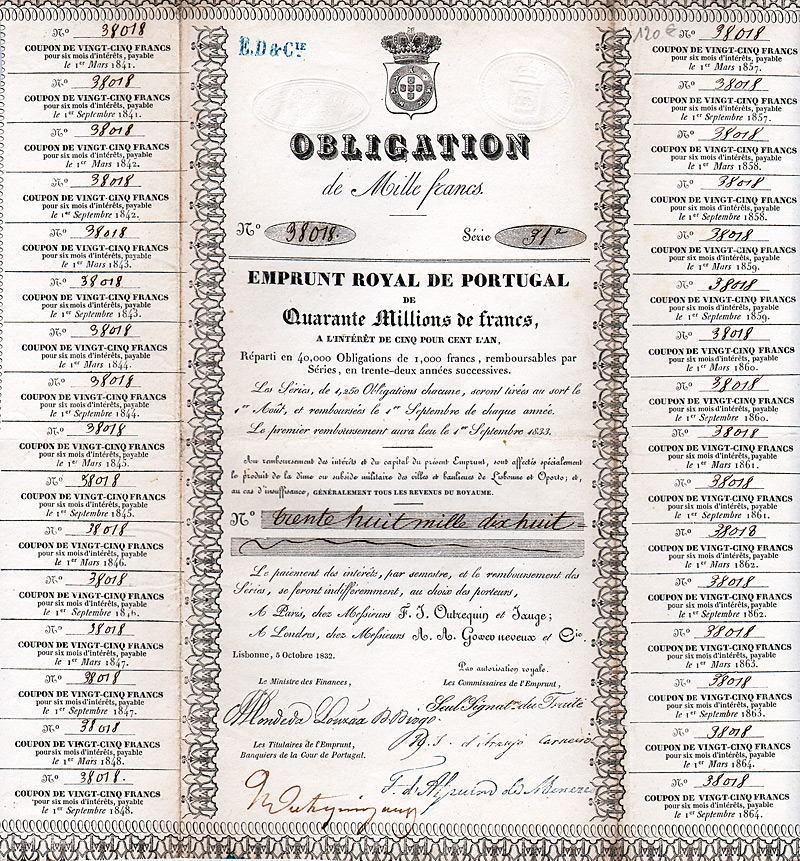 Nº 38018
COUPON DE VINGT-CINQ FRANCS
pour six mois d'intérêts, payable
le 1er Mars 1841.
Nº 38018
COUPON DE VINGT-CINQ FRANCS
pour six mois d'intérêts, payable
le 1er Septembre 1841.
Nº 38018
COUPON DE VINGT-CINQ FRANCS
pour six mois d'intérêts, payable
le 1er Mars 1842.
Nº 38018
COUPON DE VINGT-CINQ FRANCS
pour six mois d'intérêts, payable
le 1er Septembre 1842.
Nº 38018
COUPON DE VINGT-CINQ FRANCS
pour six mois d'intérêts, payable
le 1er Mars 1843.
Nº 38018
COUPON DE VINGT-CINQ FRANCS
pour six mois d'intérêts, payable
le 1er Septembre 1843.
Nº 38018
COUPON DE VINGT-CINQ FRANCS
pour six mois d'intérêts, payable
le 1er Mars 1844.
Nº 38018
COUPON DE VINGT-CINQ FRANCS
pour six mois d'intérêts, payable
le 1er Septembre 1844.
Nº 38018
COUPON DE VINGT-CINQ FRANCS
pour six mois d'intérêts, payable
le 1er Mars 1845.
Nº 38018
COUPON DE VINGT-CINQ FRANCS
pour six mois d'intérêts, payable
le 1er Septembre 1845.
Nº 38018
COUPON DE VINGT-CINQ FRANCS
pour six mois d'intérêts, payable
le 1er Mars 1846.
Nº 38018
COUPON DE VINGT-CINQ FRANCS
pour six mois d'intérêts, payable
le 1er Septembre 1846.
Nº 38018
COUPON DE VINGT-CINQ FRANCS
pour six mois d'intérêts, payable
le 1er Mars 1847.
Nº 38018
COUPON DE VINGT-CINQ FRANCS
pour six mois d'intérêts, payable
le 1er Septembre 1847.
Nº 38018
COUPON DE VINGT-CINQ FRANCS
pour six mois d'intérêts, payable
le 1er Mars 1848.
Nº 38018.
COUPON DE VINGT-CINQ FRANCS
pour six mois d'intérêts, payable
le 1er Septembre 1848.
E.D & Cie
OBLIGATION
de Mille francs.
Nº 38018. Série 31e
EMPRUNT ROYAL DE PORTUGAL
DE
Quarante Millions de francs,
A L'INTÉRÊT DE CINQ POUR CENT L'AN,
Réparti en 40,000 Obligations de 1,000 francs, remboursables par
Séries, en trente-deux années successives.
Les Séries, de 1,250 Obligations chacune, seront tirées au sort le
1er Août, et remboursées le 1er Septembre de chaque année.
Le premier remboursement aura lieu le 1er Septembre 1833.
Au remboursement des intérêts et du capital du présent Emprunt, sont affectés spécialement
le produit de la dime ou subside militaire des villes et banlieues de Lisbonne et Oporto; et,
au cas d'insuffisance, GÉNÉRALEMENT TOUS LES REVENUS DU ROYAUME.
Nº trente huit mille dix huit
Le paiement des intérêts, par semestre, et le remboursement des
Séries, se feront indifféremment, au choix des porteurs,
A Paris, chez Messieurs F. J. Outrequin et Jauge;
A Londres, chez Messieurs A. A. Gower neveux et Cie.
Lisbonne, 5 Octobre 1832.
Par autorisation royale.
Le Ministre des Finances, Les Commissaires de l'Emprunt,
Les Titulaires de l'Emprunt,
Banquiers de la Cour de Portugal.
120 €
Nº 38018
COUPON DE VINGT-CINQ FRANCS
pour six mois d'intérêts, payable
le 1er Mars 1857.
Nº 38018
COUPON DE VINGT-CINQ FRANCS
pour six mois d'intérêts, payable
le 1er Septembre 1857.
Nº 38018
COUPON DE VINGT-CINQ FRANCS
pour six mois d'intérêts, payable
le 1er Mars 1858.
Nº 38018
COUPON DE VINGT-CINQ FRANCS
pour six mois d'intérêts, payable
le 1er Septembre 1858.
Nº 38018
COUPON DE VINGT-CINQ FRANCS
pour six mois d'intérêts, payable
le 1er Mars 1859.
Nº 38018
COUPON DE VINGT-CINQ FRANCS
pour six mois d'intérêts, payable
le 1er Septembre 1859.
Nº 38018
COUPON DE VINGT-CINQ FRANCS
pour six mois d'intérêts, payable
le 1er Mars 1860.
Nº 38018
COUPON DE VINGT-CINQ FRANCS
pour six mois d'intérêts, payable
le 1er Septembre 1860.
Nº 38018
COUPON DE VINGT-CINQ FRANCS
pour six mois d'intérêts, payable
le 1er Mars 1861.
Nº 38018
COUPON DE VINGT-CINQ FRANCS
pour six mois d'intérêts, payable
le 1er Septembre 1861.
Nº 38018
COUPON DE VINGT-CINQ FRANCS
pour six mois d'intérêts, payable
le 1er Mars 1862.
Nº 38018
COUPON DE VINGT-CINQ FRANCS
pour six mois d'intérêts, payable
le 1er Septembre 1862.
Nº 38018
COUPON DE VINGT-CINQ FRANCS
pour six mois d'intérêts, payable
le 1er Mars 1863.
Nº 38018
COUPON DE VINGT-CINQ FRANCS
pour six mois d'intérêts, payable
le 1er Septembre 1863.
Nº 38018
COUPON DE VINGT-CINQ FRANCS
pour six mois d'intérêts, payable
le 1er Mars 1864.
Nº 38018
COUPON DE VINGT-CINQ FRANCS
pour six mois d'intérêts, payable
le 1er Septembre 1864.